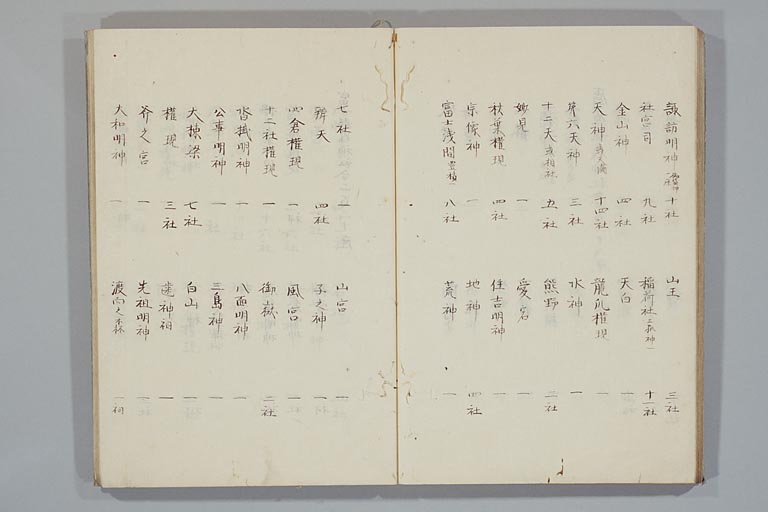 諏訪明神 十社 山王 三社
社宮司 九社 稲荷社 十一社
金山神 四社 天白 一
天神 十四社 龍爪権現 一
第六天神 三社 水神 一
十二天 五社 熊野 二社
妙見 一 愛宕 一
秋葉権現 四社 住吉明神 一
宗像神 一 地神 四社
富士浅間 八社 荒神 一
七社 一 山宮 一
辨天 四社 子之神 一
四倉権現 一 風宮 一
十二社権現 一 御嶽 二社
沓掛明神 一 八面明神 一
公事明神 一 三島神 一
大棟梁 七社 白山 一
権現 三社 竜神祠 一
斧之宮 一 先祖明神 一
大和明神 一 渡向之森 一祠